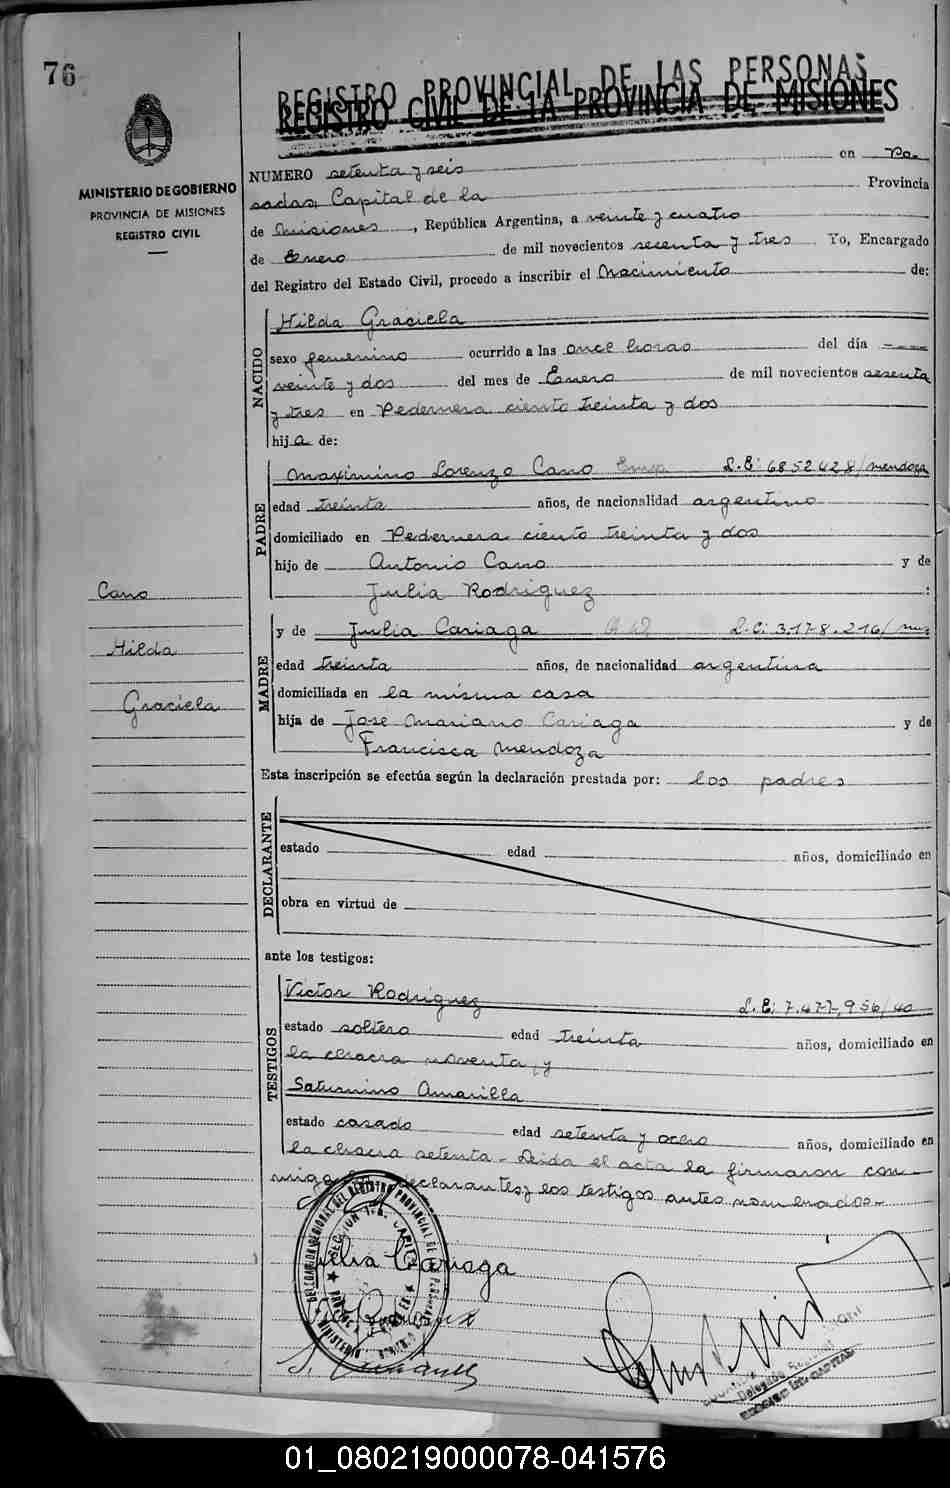 76
REGISTRO PROVINCIAL DE LAS PERSONAS
REGISTRO CIVIL DE LA PROVINCIA DE MISIONES
MINISTERIO DE GOBIERNO
PROVINCIA DE MISIONES
REGISTRO CIVIL
NUMERO setenta y seis en Po-
sadas, Capital de la Provincia
de Misiones, República Argentina, a veinte y cuatro
de Enero de mil novecientos secenta y tres. Yo, Encargado
del Registro del Estado Civil, procedo a inscribir el Nacimiento de:
NACIDO
Hilda Graciela
sexo femenino ocurrido a las once horas del día
veinte y dos del mes de Enero de mil novecientos sesenta
y tres en Pedernera ciento treinta y dos
hija de:
PADRE
Maximino Lorenzo Cano L.E: 6852428/mendoza
edad treinta años, de nacionalidad argentino
domiciliado en Pedernera ciento treinta y dos
hijo de Antonio Cano y de
Julia Rodriguez :
Cano
Hilda
Graciela
MADRE
y de Julia Cariaga L.C: 3.178.216/
edad treinta años, de nacionalidad argentina
domiciliada en la misma casa
hija de José Mariano Cariaga y de
Francisca Mendoza
Esta inscripción se efectúa según la declaración prestada por: los padres
DECLARANTE
estado edad años, domiciliado en
obra en virtud de
ante los testigos:
TESTIGOS
Victor Rodriguez L.E: 7.477.956/40
estado soltero edad treinta años, domiciliado en
la chacra noventa y
Saturnino Amarilla
estado casado edad setenta y ocho años, domiciliado en
la chacra setenta - Leida el acta la firmaron con-
migo declarantes y los testigos antes nombrados-
Julia Cariaga
DELEGACION REGIONAL DEL REGISTRO PROVINCIAL DE
Delegado Regional
01_080219000078-041576